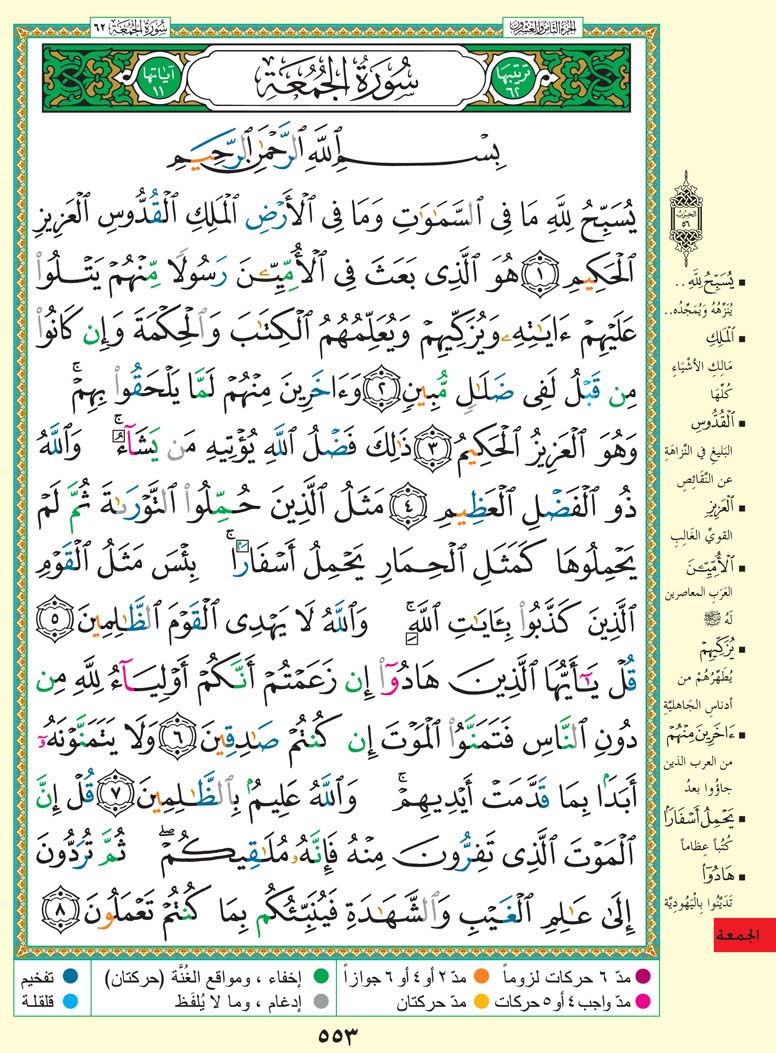 الجزء الثامن والعشرون
سُورَةُ الجُمُعَة ٦٢
ترتيبها ٦٢
سُورَةُ الجُمُعَةِ
آياتها ١١
بِسْمِ ٱللَّهِ ٱلرَّحْمَٰنِ ٱلرَّحِيمِ
يُسَبِّحُ لِلَّهِ مَا فِى ٱلسَّمَٰوَٰتِ وَمَا فِى ٱلْأَرْضِ ٱلْمَلِكِ ٱلْقُدُّوسِ ٱلْعَزِيزِ
ٱلْحَكِيمِ ١ هُوَ ٱلَّذِى بَعَثَ فِى ٱلْأُمِّيِّۦنَ رَسُولًا مِّنْهُمْ يَتْلُوا۟
عَلَيْهِمْ ءَايَٰتِهِۦ وَيُزَكِّيهِمْ وَيُعَلِّمُهُمُ ٱلْكِتَٰبَ وَٱلْحِكْمَةَ وَإِن كَانُوا۟
مِن قَبْلُ لَفِى ضَلَٰلٍ مُّبِينٍ ٢ وَءَاخَرِينَ مِنْهُمْ لَمَّا يَلْحَقُوا۟ بِهِمْ ۚ
وَهُوَ ٱلْعَزِيزُ ٱلْحَكِيمُ ٣ ذَٰلِكَ فَضْلُ ٱللَّهِ يُؤْتِيهِ مَن يَشَآءُ ۚ وَٱللَّهُ
ذُو ٱلْفَضْلِ ٱلْعَظِيمِ ٤ مَثَلُ ٱلَّذِينَ حُمِّلُوا۟ ٱلتَّوْرَىٰةَ ثُمَّ لَمْ
يَحْمِلُوهَا كَمَثَلِ ٱلْحِمَارِ يَحْمِلُ أَسْفَارًۢا ۚ بِئْسَ مَثَلُ ٱلْقَوْمِ
ٱلَّذِينَ كَذَّبُوا۟ بِـَٔايَٰتِ ٱللَّهِ ۚ وَٱللَّهُ لَا يَهْدِى ٱلْقَوْمَ ٱلظَّٰلِمِينَ ٥
قُلْ يَٰٓأَيُّهَا ٱلَّذِينَ هَادُوٓا۟ إِن زَعَمْتُمْ أَنَّكُمْ أَوْلِيَآءُ لِلَّهِ مِن
دُونِ ٱلنَّاسِ فَتَمَنَّوُا۟ ٱلْمَوْتَ إِن كُنتُمْ صَٰدِقِينَ ٦ وَلَا يَتَمَنَّوْنَهُۥٓ
أَبَدًۢا بِمَا قَدَّمَتْ أَيْدِيهِمْ ۚ وَٱللَّهُ عَلِيمٌۢ بِٱلظَّٰلِمِينَ ٧ قُلْ إِنَّ
ٱلْمَوْتَ ٱلَّذِى تَفِرُّونَ مِنْهُ فَإِنَّهُۥ مُلَٰقِيكُمْ ۖ ثُمَّ تُرَدُّونَ
إِلَىٰ عَٰلِمِ ٱلْغَيْبِ وَٱلشَّهَٰدَةِ فَيُنَبِّئُكُم بِمَا كُنتُمْ تَعْمَلُونَ ٨
الحزب ٥٦
▪ يُسَبِّحُ لِلَّهِ ..
يُنَزِّهُهُ وَيُمَجِّدُه..
▪ ٱلْمَلِكِ
مَالِكِ الأشْيَاءِ
كُلِّهَا
▪ ٱلْقُدُّوسِ
البَلِيغِ في النَّزَاهَةِ
عن النَّقَائِصِ
▪ ٱلْعَزِيزِ
القويِّ الغَالِبِ
▪ ٱلْأُمِّيِّۦنَ
العَرَب المعاصرين
لَهُ ﷺ
▪ يُزَكِّيهِمْ
يُطَهِّرُهُمْ من
أدناسِ الجَاهليَّةِ
▪ ءَاخَرِينَ مِنْهُمْ
من العرب الذين
جاؤُوا بعدُ
▪ يَحْمِلُ أَسْفَارًا
كُتُباً عِظاماً
▪ هَادُوٓا۟
تَدَيَّنُوا بِالْيَهُودِيَّة
الجمعة
مدّ ٦ حركات لزوماً
مدّ ٢ أو ٤ أو ٦ جوازاً
إخفاء ، ومواقع الغُنَّة (حركتان)
تفخيم
مدّ واجب ٤ أو ٥ حركات
مدّ حركتان
إدغام ، وما لا يُلفَظ
قلقلة
٥٥٣